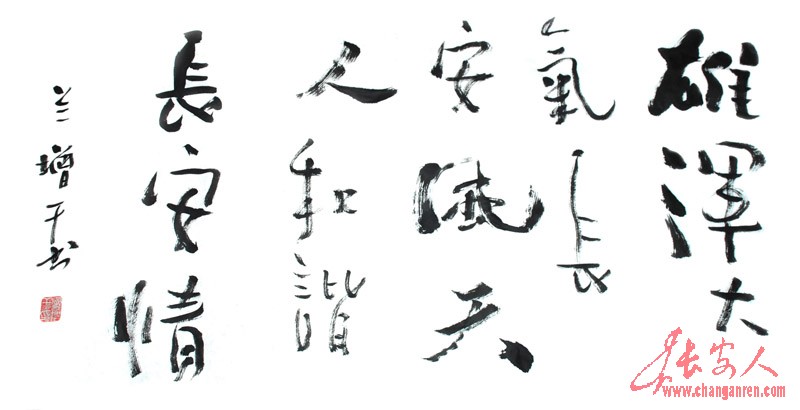 雄渾大
氣長
安風天
人和諧
長安情
兰增干书
长安人
www.changanren.com